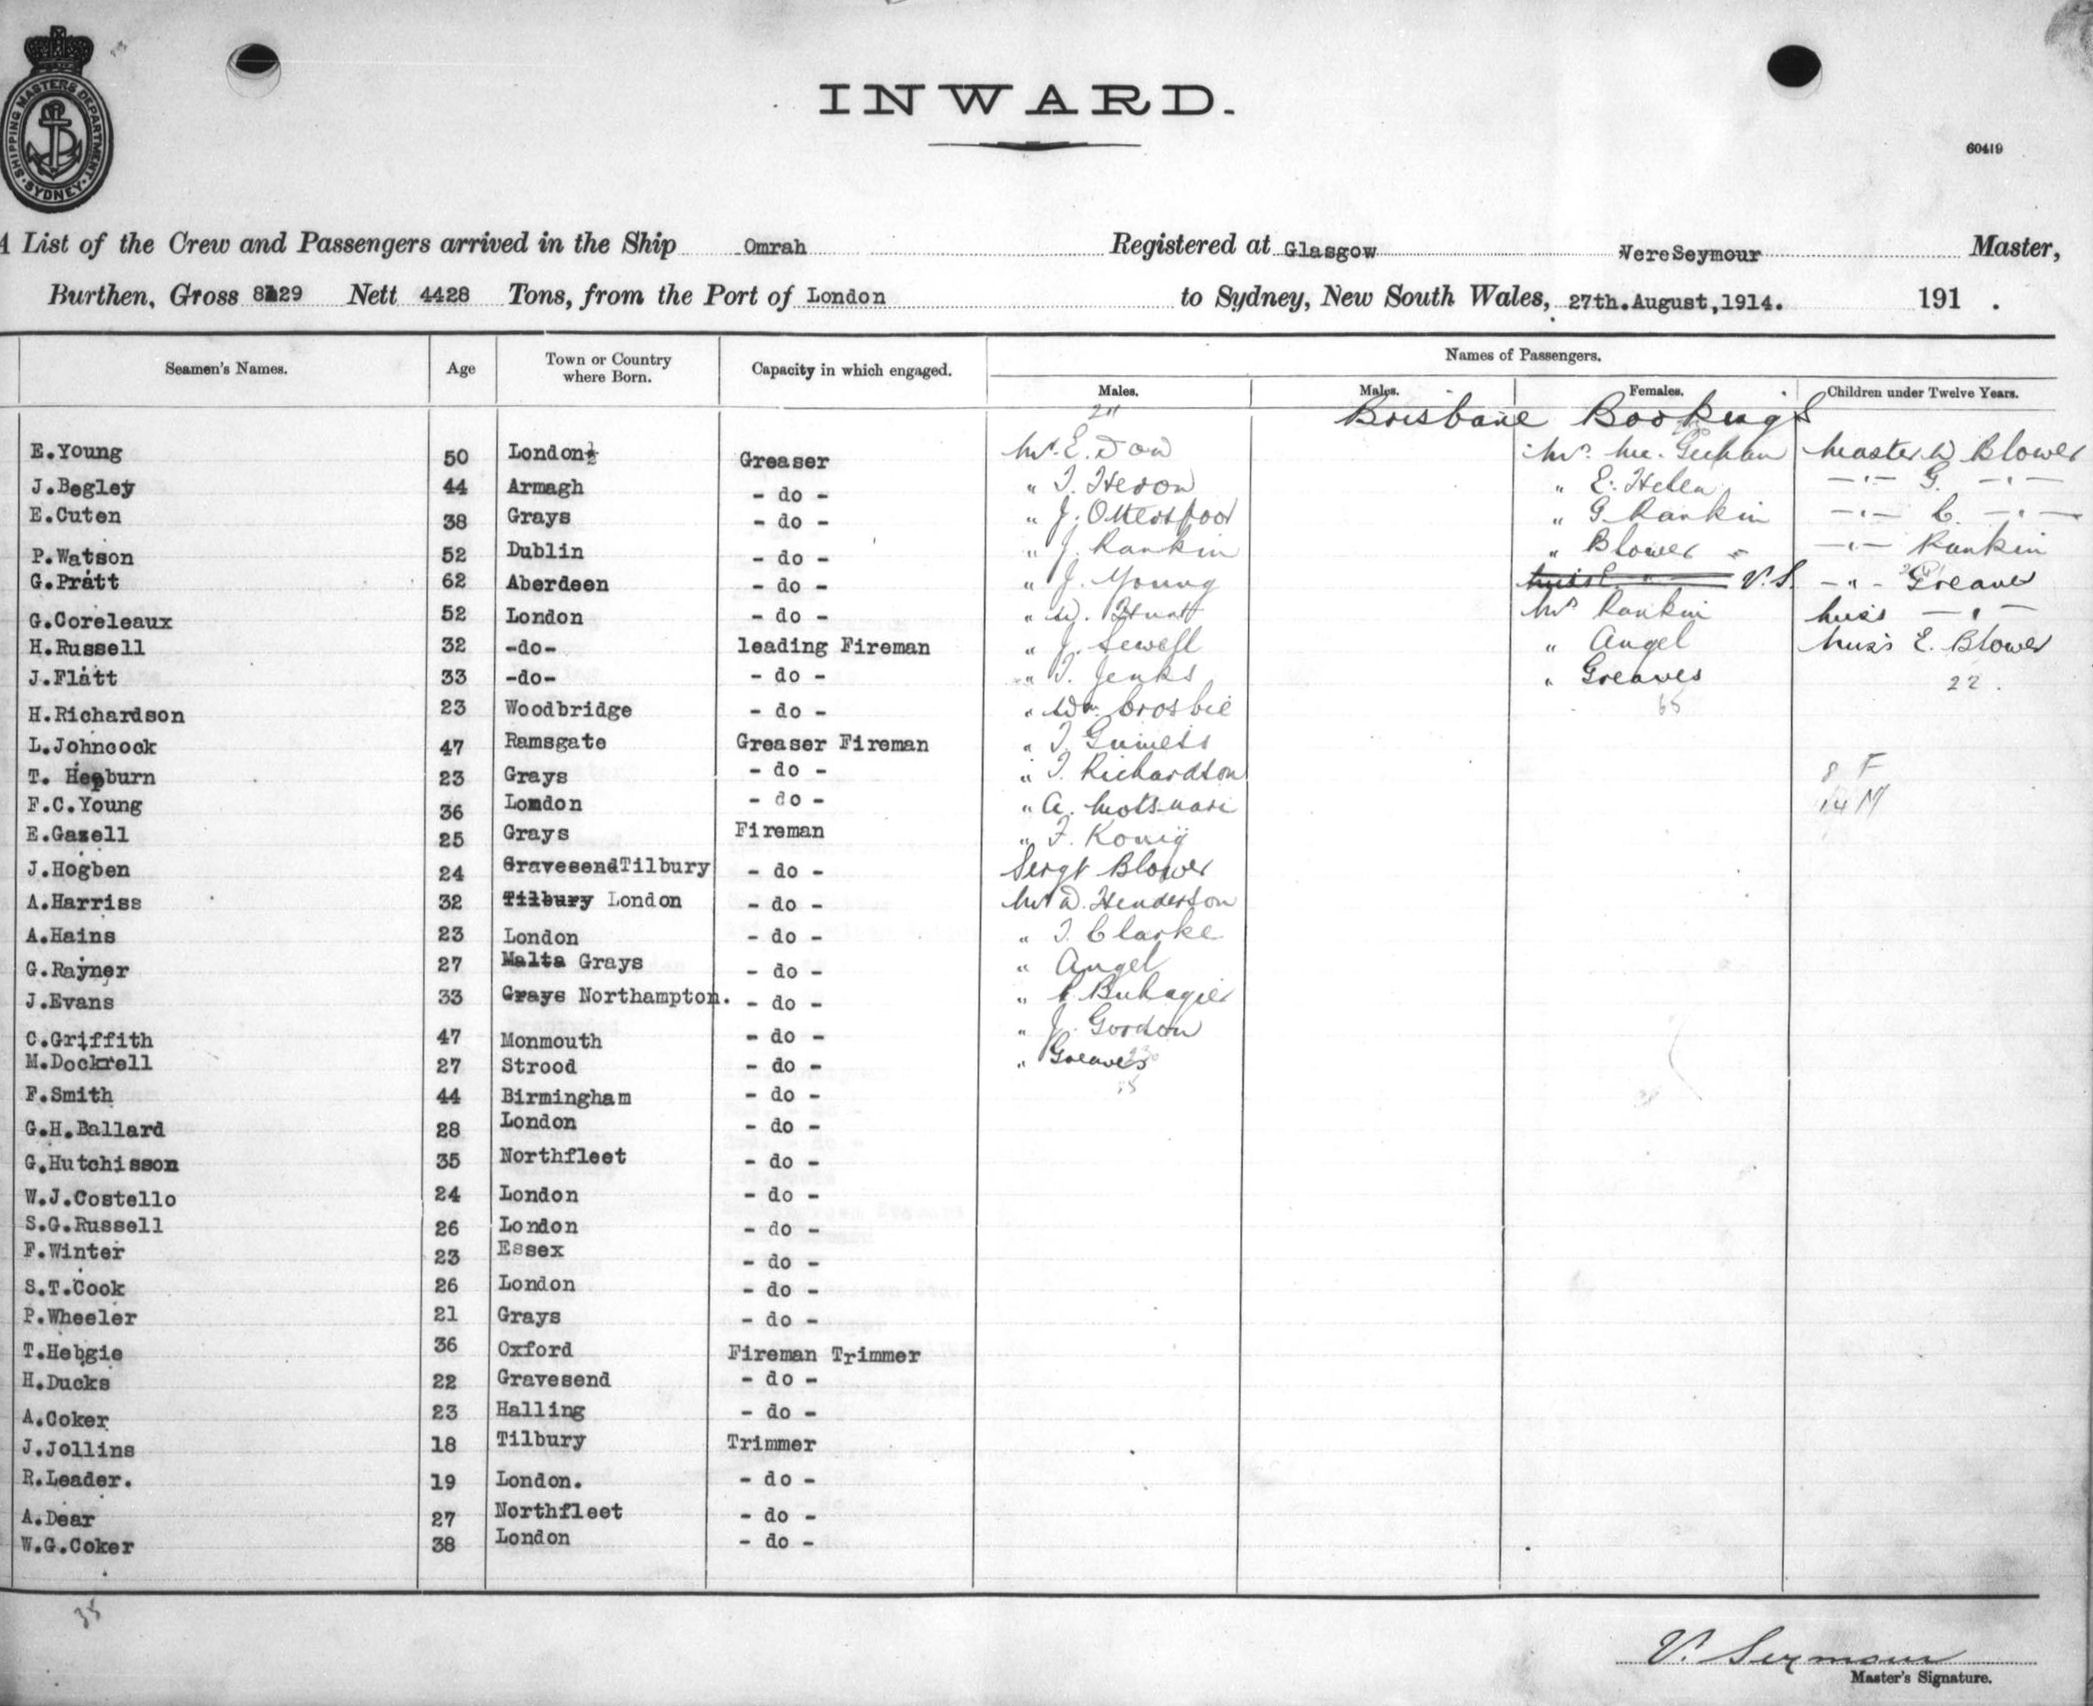 SHIPPING MASTERS DEPARTMENT SYDNEY
INWARD.
60419
A List of the Crew and Passengers arrived in the Ship Omrah Registered at Glasgow Vere Seymour Master,
Burthen, Gross 8129 Nett 4428 Tons, from the Port of London to Sydney, New South Wales, 27th.August,1914. 191 .
Seamen's Names. Age Town or Country where Born. Capacity in which engaged. Names of Passengers.
Males. Males. Females. Children under Twelve Years.
Brisbane Bookings
E.Young 50 London Greaser Mr. E. Dow Mrs. Mc. Master W Blower
J.Begley 44 Armagh - do - " T. Heron " E. Helen -"- G. -"-
E.Cuten 38 Grays - do - " J. Otterspoor " G. Rankin -"- C. -"-
P.Watson 52 Dublin - do - " J. Rankin " Blower -"- Rankin
G.Pratt 62 Aberdeen - do - " J. Young V.S. -"- Greaves
G.Coreleaux 52 London - do - " W. Mrs Rankin Miss -"-
H.Russell 32 -do- leading Fireman " J. Sewell " Angel Miss E. Blower
J.Flatt 33 -do- - do - " T. Jenks " Greaves 22.
H.Richardson 23 Woodbridge - do - " Wm. Crosbie 65
L.Johncock 47 Ramsgate Greaser Fireman " T.
T. Hepburn 23 Grays - do - " T. Richardson 8 F
F.C.Young 36 London - do - " A. 14 M
E.Gazell 25 Grays Fireman " F. König
J.Hogben 24 Gravesend Tilbury - do - Sergt Blower
A.Harriss 32 Tilbury London - do - Mr D. Henderson
A.Hains 23 London - do - " T. Clarke
G.Rayner 27 Malta Grays - do - " Angel
J.Evans 33 Grays Northampton. - do - " Buhagier
C.Griffith 47 Monmouth - do - " J. Gordon
M.Dockrell 27 Strood - do - " Greaves
F.Smith 44 Birmingham - do -
G.H.Ballard 28 London - do -
G.Hutchisson 35 Northfleet - do -
W.J.Costello 24 London - do -
S.G.Russell 26 London - do -
F.Winter 23 Essex - do -
S.T.Cook 26 London - do -
P.Wheeler 21 Grays - do -
T.Hebgie 36 Oxford Fireman Trimmer
H.Ducks 22 Gravesend - do -
A.Coker 23 Halling - do -
J.Jollins 18 Tilbury Trimmer
R.Leader. 19 London. - do -
A.Dear 27 Northfleet - do -
W.G.Coker 38 London - do -
35
V. Seymour
Master's Signature.